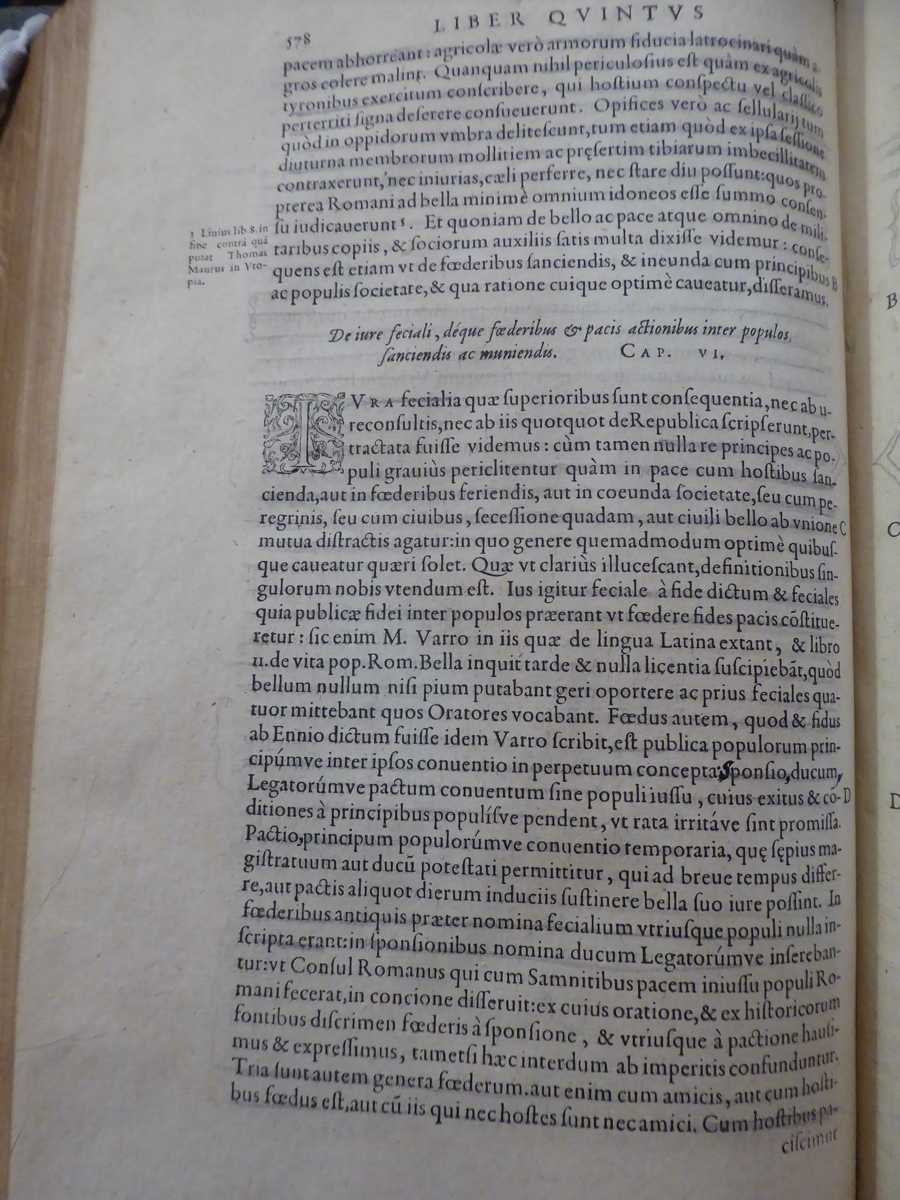 578
LIBER QVINTVS
pacem abhorreant: agricolæ verò armorum fiducia latrocinari quàm a-
gros colere malint. Quanquam nihil periculosius est quàm ex agricolis
tyronibus exercitum conscribere, qui hostium conspectu vel classico
perterriti signa deserere consueuerunt. Opifices verò ac sellularij tum
quòd in oppidorum vmbra delitescunt, tum etiam quòd ex ipsa sessione
diuturna membrorum mollitiem ac pręsertim tibiarum imbecillitatem
contraxerunt, nec iniurias, cæli perferre, nec stare diu possunt: quos pro-
pterea Romani ad bella minimè omnium idoneos esse summo consen-
su iudicauerunt ¹. Et quoniam de bello ac pace atque omnino de mili-
taribus copiis, & sociorum auxiliis satis multa dixisse videmur: conse-
quens est etiam vt de fœderibus sanciendis, & ineunda cum principibus B
ac populis societate, & qua ratione cuique optimè caueatur, disseramus.
1 Liuius lib. 8. in
fine contrà quá
putat Thomas
Maurus in Vto-
pia.
De iure feciali, déque fœderibus & pacis actionibus inter populos
sanciendis ac muniendis. CAP. VI.
IVRA fecialia quæ superioribus sunt consequentia, nec ab iu-
reconsultis, nec ab iis quotquot de Republica scripserunt, per-
tractata fuisse videmus: cùm tamen nulla re principes ac po-
puli grauiùs periclitentur quàm in pace cum hostibus san-
cienda, aut in fœderibus feriendis, aut in coeunda societate, seu cum pe-
regrinis, seu cum ciuibus, secessione quadam, aut ciuili bello ab vnione C
mutua distractis agatur: in quo genere quemadmodum optimè quibus-
que caueatur quæri solet. Quæ vt clariùs illucescant, definitionibus sin-
gulorum nobis vtendum est. Ius igitur feciale à fide dictum & feciales
quia publicæ fidei inter populos præerant vt fœdere fides pacis cõstitue-
retur: sic enim M. Varro in iis quæ de lingua Latina extant, & libro
11. de vita pop. Rom. Bella inquit tarde & nulla licentia suscipiebãt, quòd
bellum nullum nisi pium putabant geri oportere ac prius feciales qua-
tuor mittebant quos Oratores vocabant. Fœdus autem, quod & fidus
ab Ennio dictum fuisse idem Varro scribit, est publica populorum prin-
cipúmve inter ipsos conuentio in perpetuum concepta: Sponsio, ducum,
Legatorúmve pactum conuentum sine populi iussu, cuius exitus & cõ- D
ditiones à principibus populísve pendent, vt rata irritáve sint promissa.
Pactio, principum populorúmve conuentio temporaria, quę sępius ma-
gistratuum aut ducũ potestati permittitur, qui ad breue tempus differ-
re, aut pactis aliquot dierum induciis sustinere bella suo iure possint. In
fœderibus antiquis præter nomina fecialium vtriusque populi nulla in-
scripta erant: in sponsionibus nomina ducum Legatorúmve insereban-
tur: vt Consul Romanus qui cum Samnitibus pacem iniussu populi Ro-
mani fecerat, in concione disseruit: ex cuius oratione, & ex historicorum
fontibus discrimen fœderis à sponsione, & vtriusque à pactione hausi-
mus & expressimus, tametsi hæc interdum ab imperitis confunduntur.
Tria sunt autem genera fœderum. aut enim cum amicis, aut cum hosti-
bus fœdus est, aut cũ iis qui nec hostes sunt nec amici. Cum hostibus pa-
ciscimur